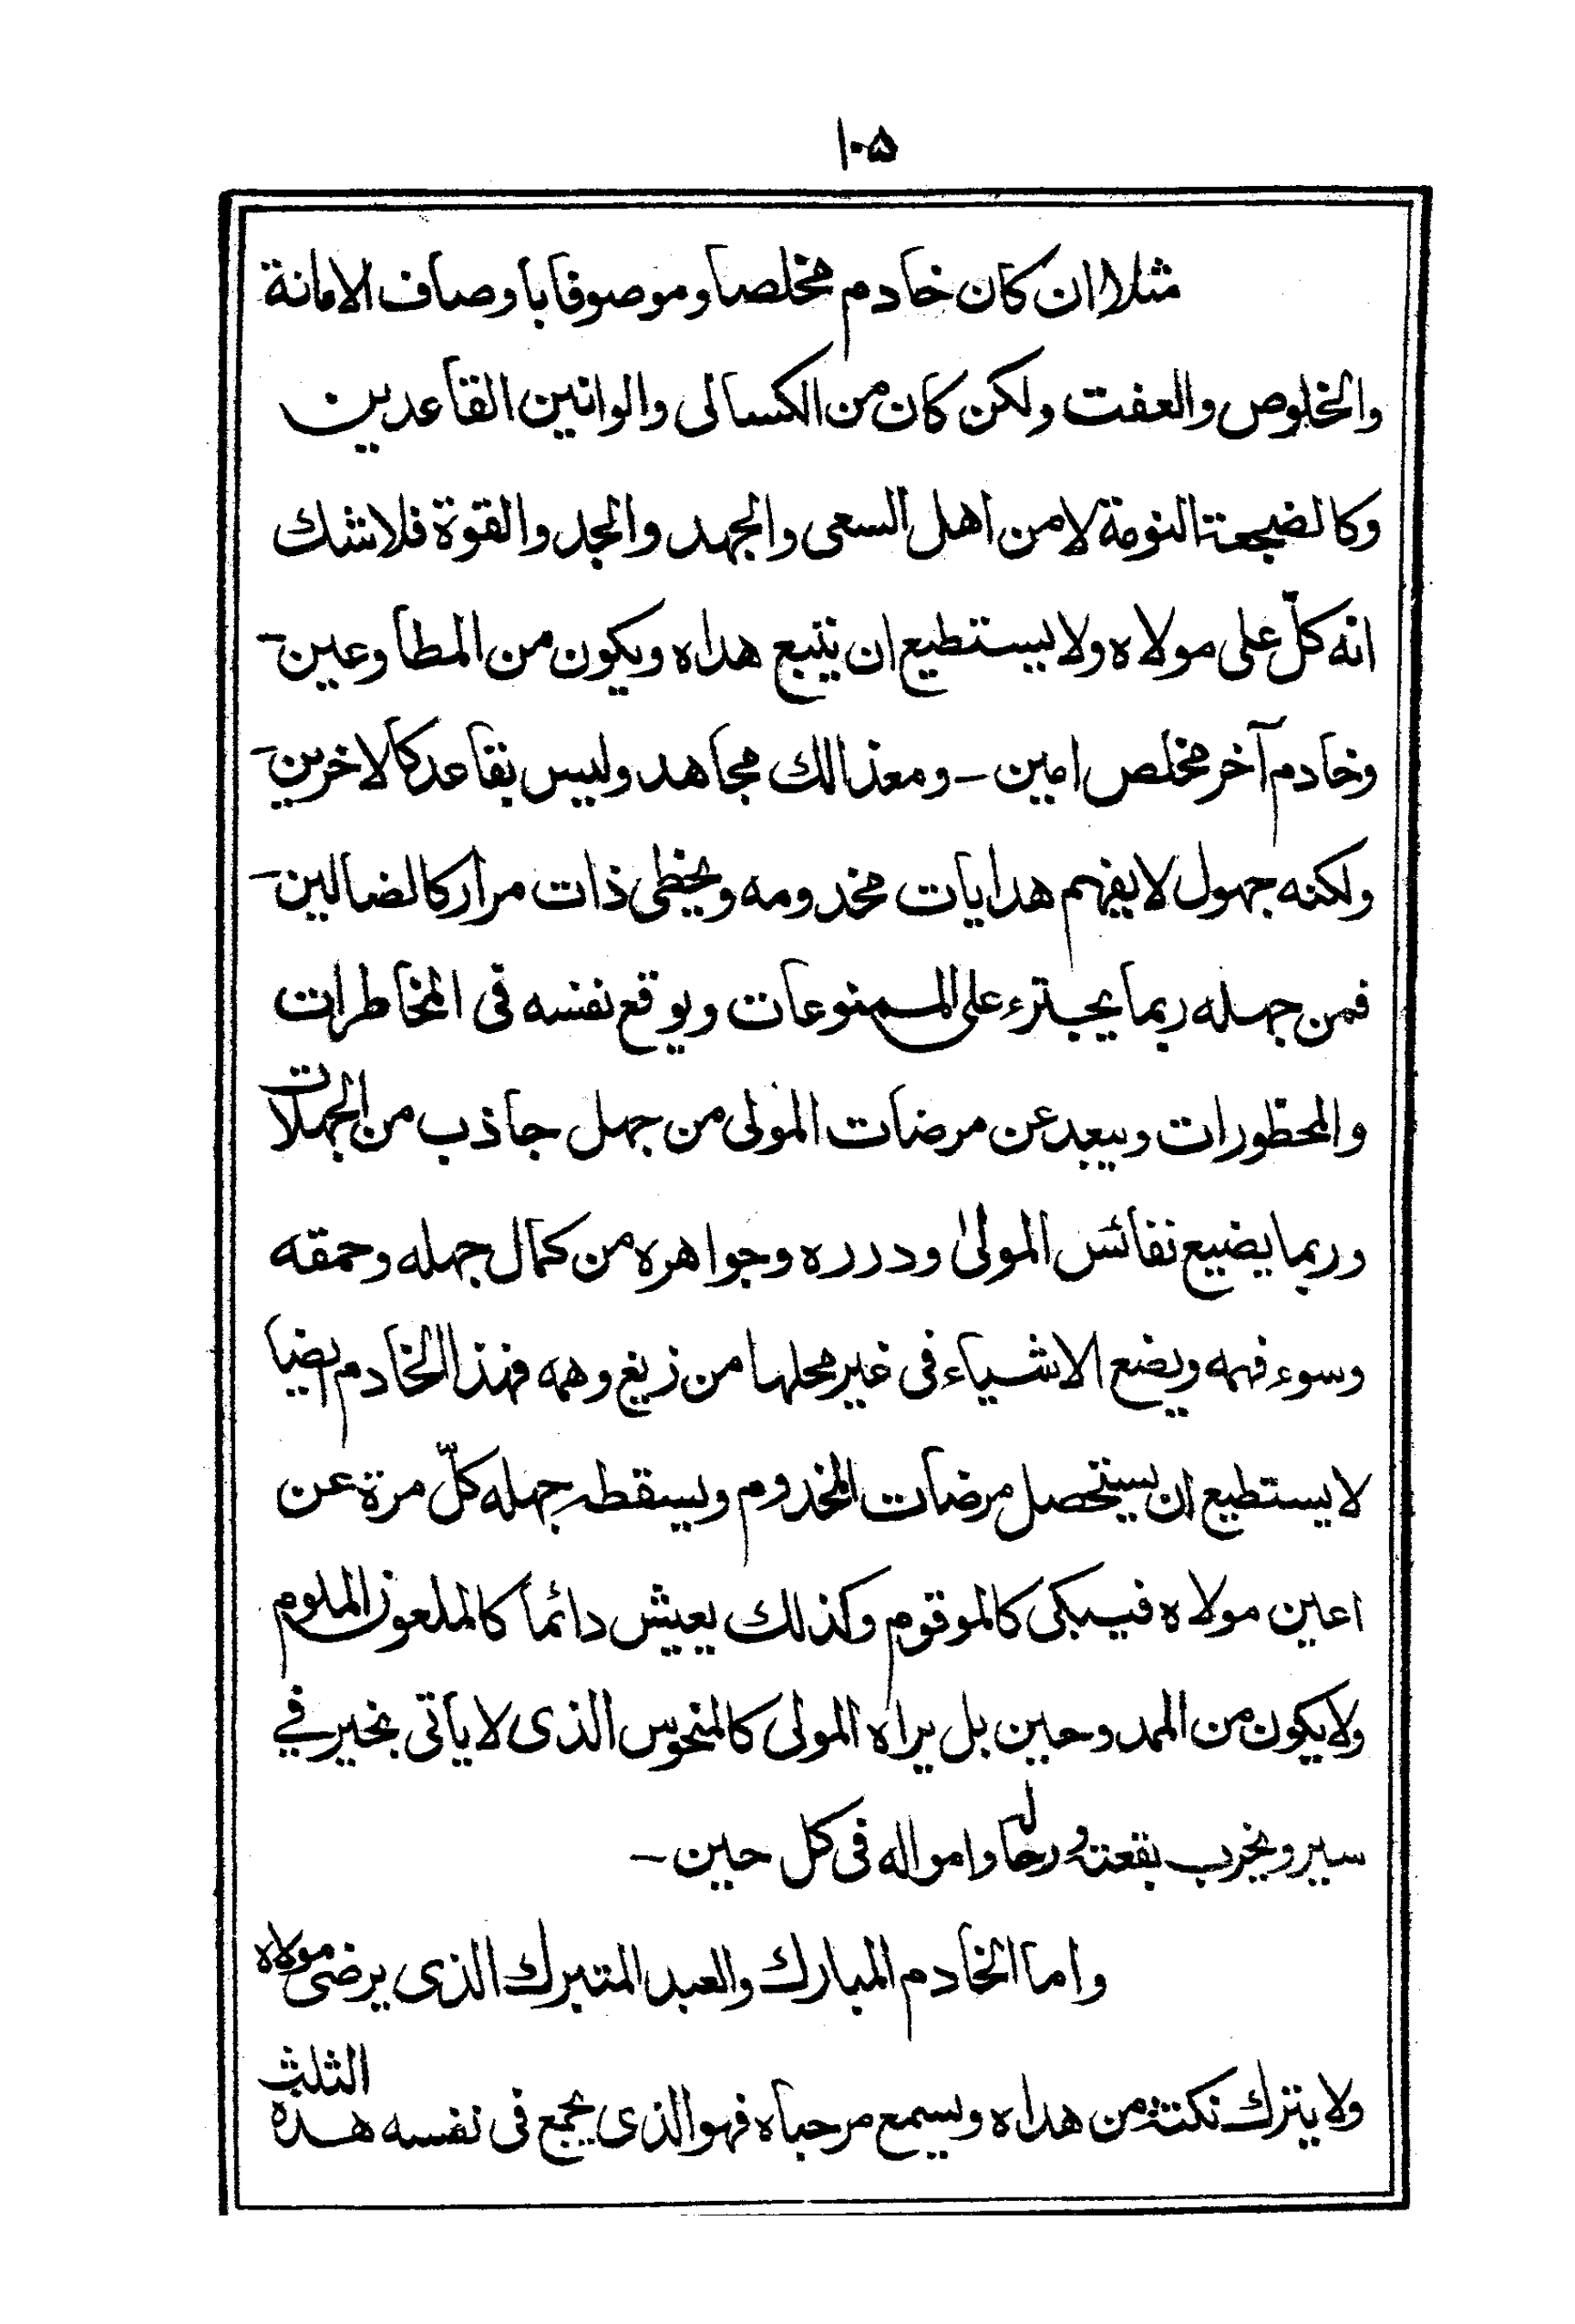 ۱۰۵
مثلا ان كان خادم مخلصا و موصوفا باوصاف الامانة
والخلوص والعفت ولكن كان من الكسالى والوانين القاعدين
وكالضجعة النومة لا من اهل السعى والجهد والجد والقوة فلا شك
انه كلّ على مولاه ولا يستطيع ان يتبع هداه ويكون من المطاوعين-
وخادم آخر مخلص امين - ومعذالك مجاهد وليس بقاعد كالاخرين-
ولكنه جهول لا يفهم هدايات مخدومه ويخطى ذات مرار كالضالين-
فمن جهله ربما يجترء على الممنوعات ويوقع نفسه فى المخاطرات
والمحظورات ويبعد عن مرضات المولى من جهل جاذب من الجهلات
وربما يضيع نفائس المولىٰ ودرره وجواهره من كمال جهله وحمقه
وسوء فهمه ويضع الاشياء فى غير محلها من زيغ وهمه فهذا الخادم ايضا
لا يستطيع ان يستحصل مرضات المخدوم ويسقطه جهله كلّ مرة عن
اعين مولاه فيبكى كالموقوم وكذلك يعيش دائما كالملعون الملوم
ولا يكون من الممدوحين بل يراه المولى كالمنحوس الذى لا ياتى بخير في
سير ويخرب بقعته ورحاله وامواله فى كل حين -
واما الخادم المبارك والعبد المتبرك الذى يرضى مولاه
ولا يترك نكتة من هداه ويسمع مرحباه فهو الذى يجمع فى نفسه هذه الثلث